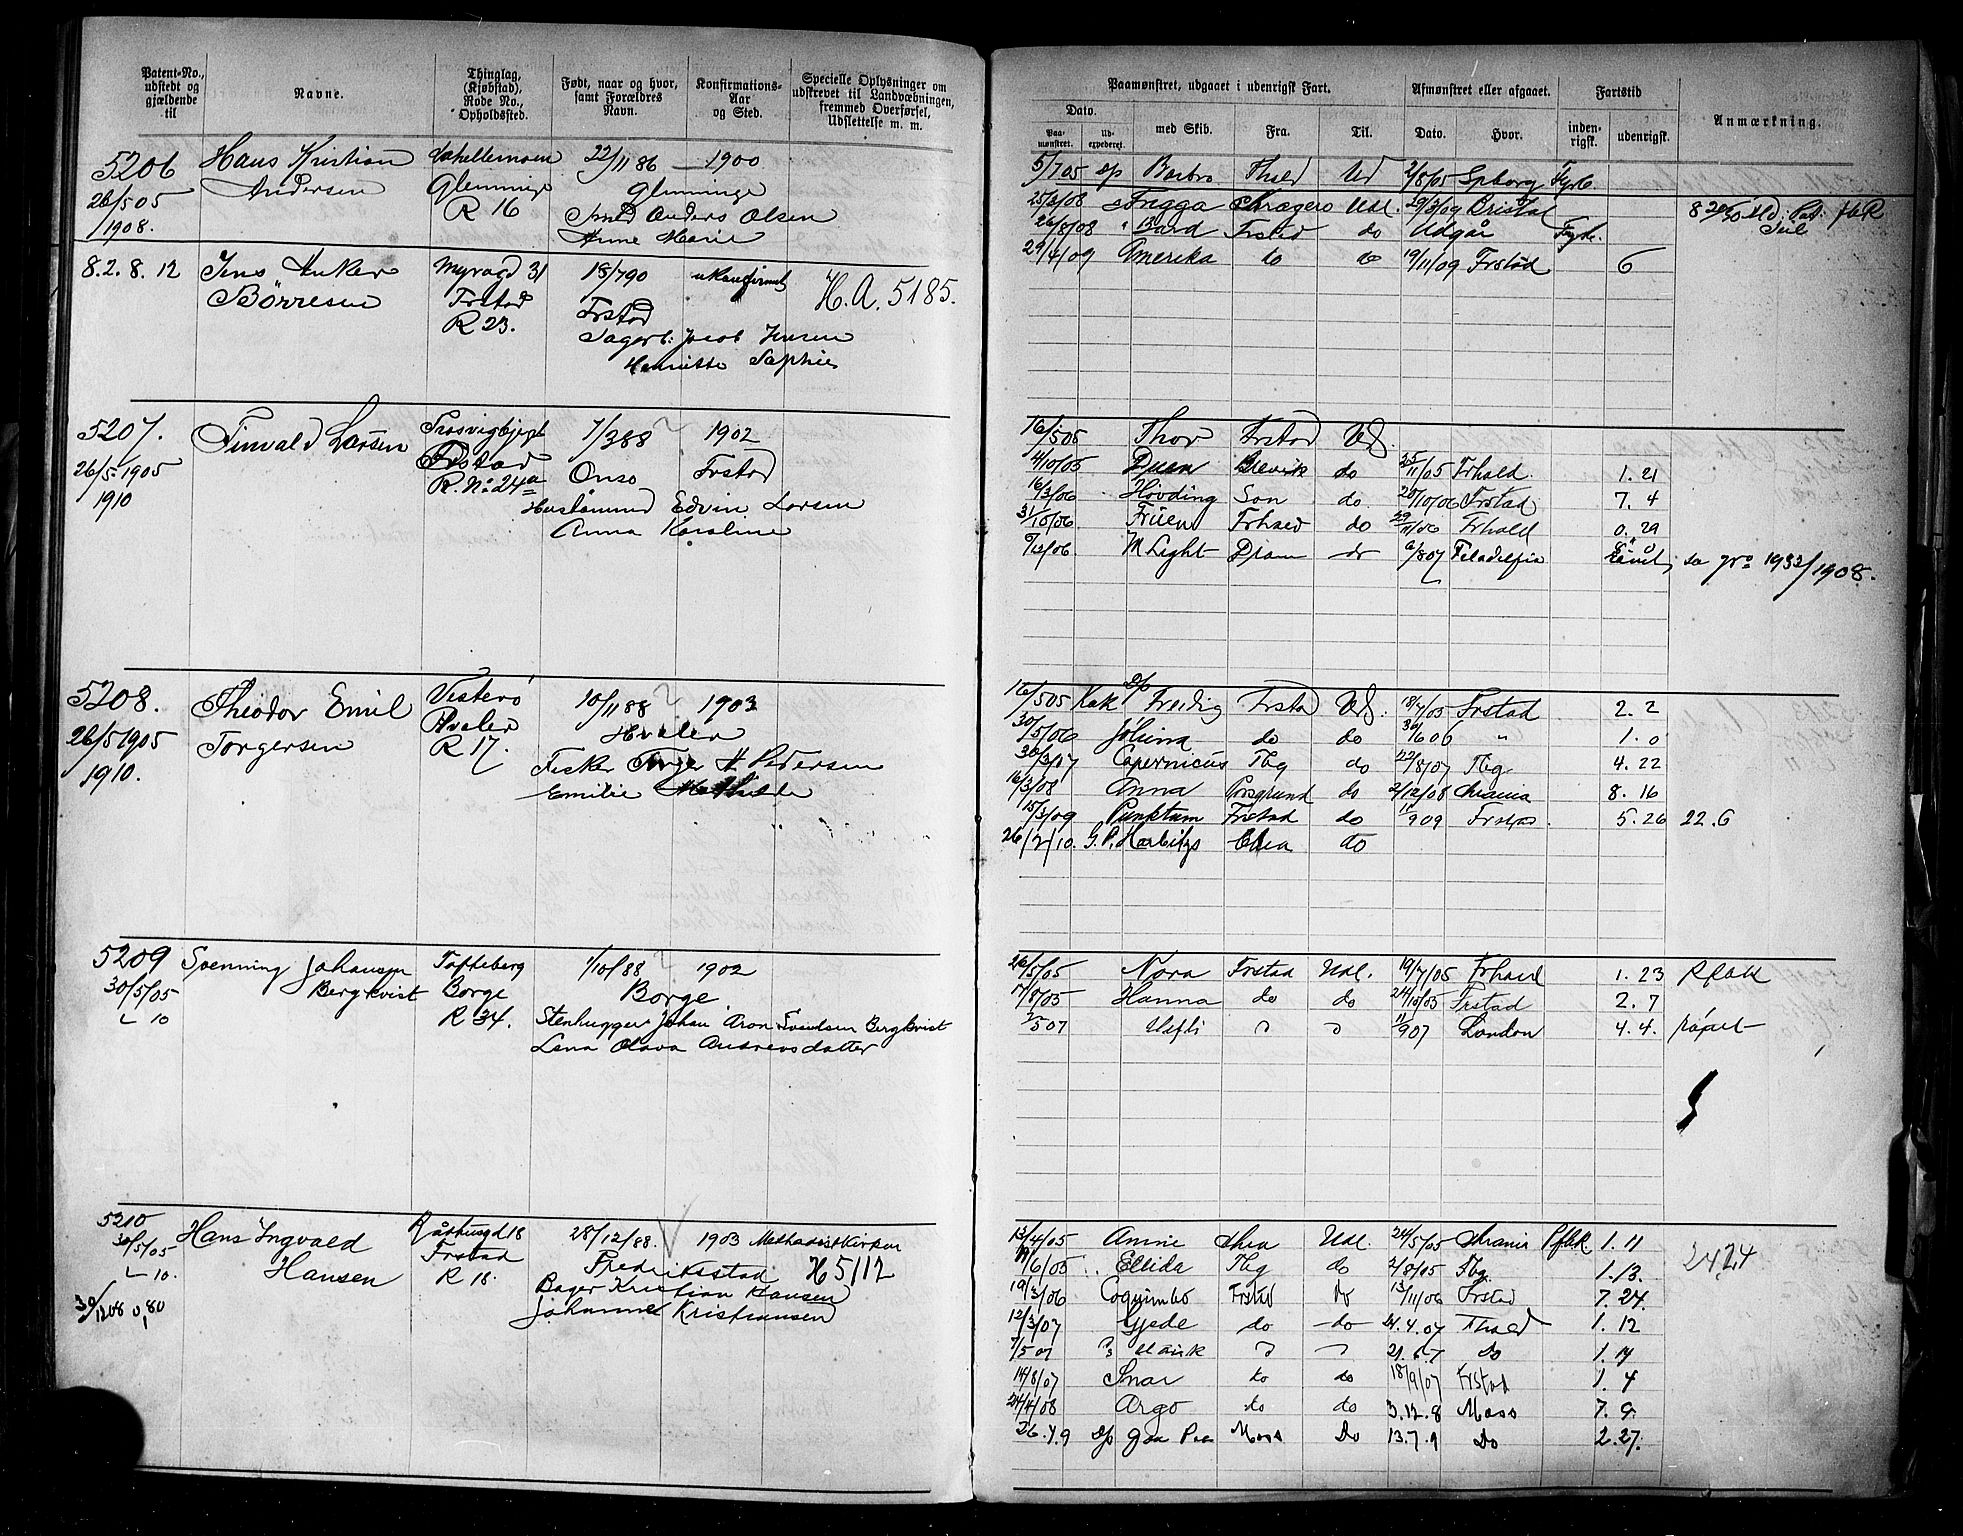 Patent-No., udstedt og gjældende til
Navne.
Thinglag, (Kjøbstad), Rode No., Opholdssted.
Født, naar og hvor, samt Forældres Navn.
Konfirmations-Aar og Sted.
Specielle Oplysninger om udskrevet til Landvæbningen, fremmed Overførsel, Udslettelse m. m.
5206 Hans Kristian 22/11 86 1900
Andersen Glemminge Glemminge
26/5 05 R 16 Anders Olsen
1908. Anne Marie
8.2.8.12 Jens Anker Myragd 31 18/7 90 ukonfirmet H.A. 5185.
Børresen Frstad Frstad
R 23. Jacob Jensen
Henriette Sophie
5207. Finvald Larsen 1/3 88 1902
26/5 1905 Frstad Onsø Frstad
1910 R. No 24a Husmand Edvin Larsen
Anna Karoline
5208. Theodor Emil Vesterø 10/11 88 1903
Torgersen Hvaler Hvaler
26/5 1905 R 17. Fisker Torger H. Pedersen
1910. Emilie Mathilde
5209 Svenning Johansen Tofteberg 1/10 88 1902
30/5/05 Bergkvist Borge Borge.
- 10 R 34. Stenhugger Johan Aron Svendsen Bergkvist
Lena Olava Andreasdatter
5210 Hans Ingvald Raadhusgd 18 28/12/88. 1903 Methodistkirken
30/5/05 Hansen Frstad Fredriksstad H 5112
- 10. R 18. Bager Kristian Hansen
30/12 08 0,80 Kristiansen
Paamønstret, udgaaet i udenrigsk Fart.
Afmønstret eller afgaaet.
Fartstid
Anmærkning.
Dato.
Paa-mønstret.
Ud-expederet.
med Skib.
Fra.
Til.
Dato.
Hvor.
inden-rigsk.
udenrigsk.
5/7 05 D/p Barbro Fhald Ud 2/8/05 Spborg Fyrb.
25/3/08 Frigga Kragerø Udl. 29/3/09 Bristol
26/8/08 Frstad do Udgår Fyrb.
29/4/09 Amerika do do 19/11/09 Frstad 6
16/5 05 Thor Frstad Ud.
4/10/05 Brevik do 25/11/05 Frhald 1. 21
16/3/06 Høvding Son do 28/10/06 Frstad 7. 4
31/10/06 Frhald do 29/11/06 Frhald 0. 29
M Light Dram do 6/8 07 Filadelfia se No 1932/1908.
16/5 05 D/p Freidig Frstad Ud. 18/7/05 Frstad 2. 2
30/5/06 do do 30/6 06 " 1. 0
30/3/07 Copernicus Tbg do 22/8/07 Tbg 4. 22
16/3/08 Anna Porsgrund do 2/12/08 8. 16
15/3/09 Punktum Frstad do 11/9 09 Frstad 5. 26 22.6
26/2/10. G. P. Harbitz do
26/5/05 Nora Frstad Udl. 19/7/05 Frhald 1. 23
7/8/05 Hanna do do 24/10/05 Frstad 2. 7
2/5 07 11/9 07 London 4. 4.
13/4/05 Udl. 24/5/05 1. 11 24.24
11/6/05 Ellida Tbg do 2/8/05 Tbg. 1. 13.
19/3/06 Coquimbo Frstad Do 13/11/06 Frstad 7. 24.
12/3/07 Gjede do do 24.4.07 Fhald 1. 12
7/5 07 21.6.7 Do 1. 14
14/8/07 Snar do do 18/9/07 Frstad 1. 4
24/4/08 Argo do do 3.12.8 Moss 7. 9
D/p Moss Do 13.7.9 Do 2. 27.